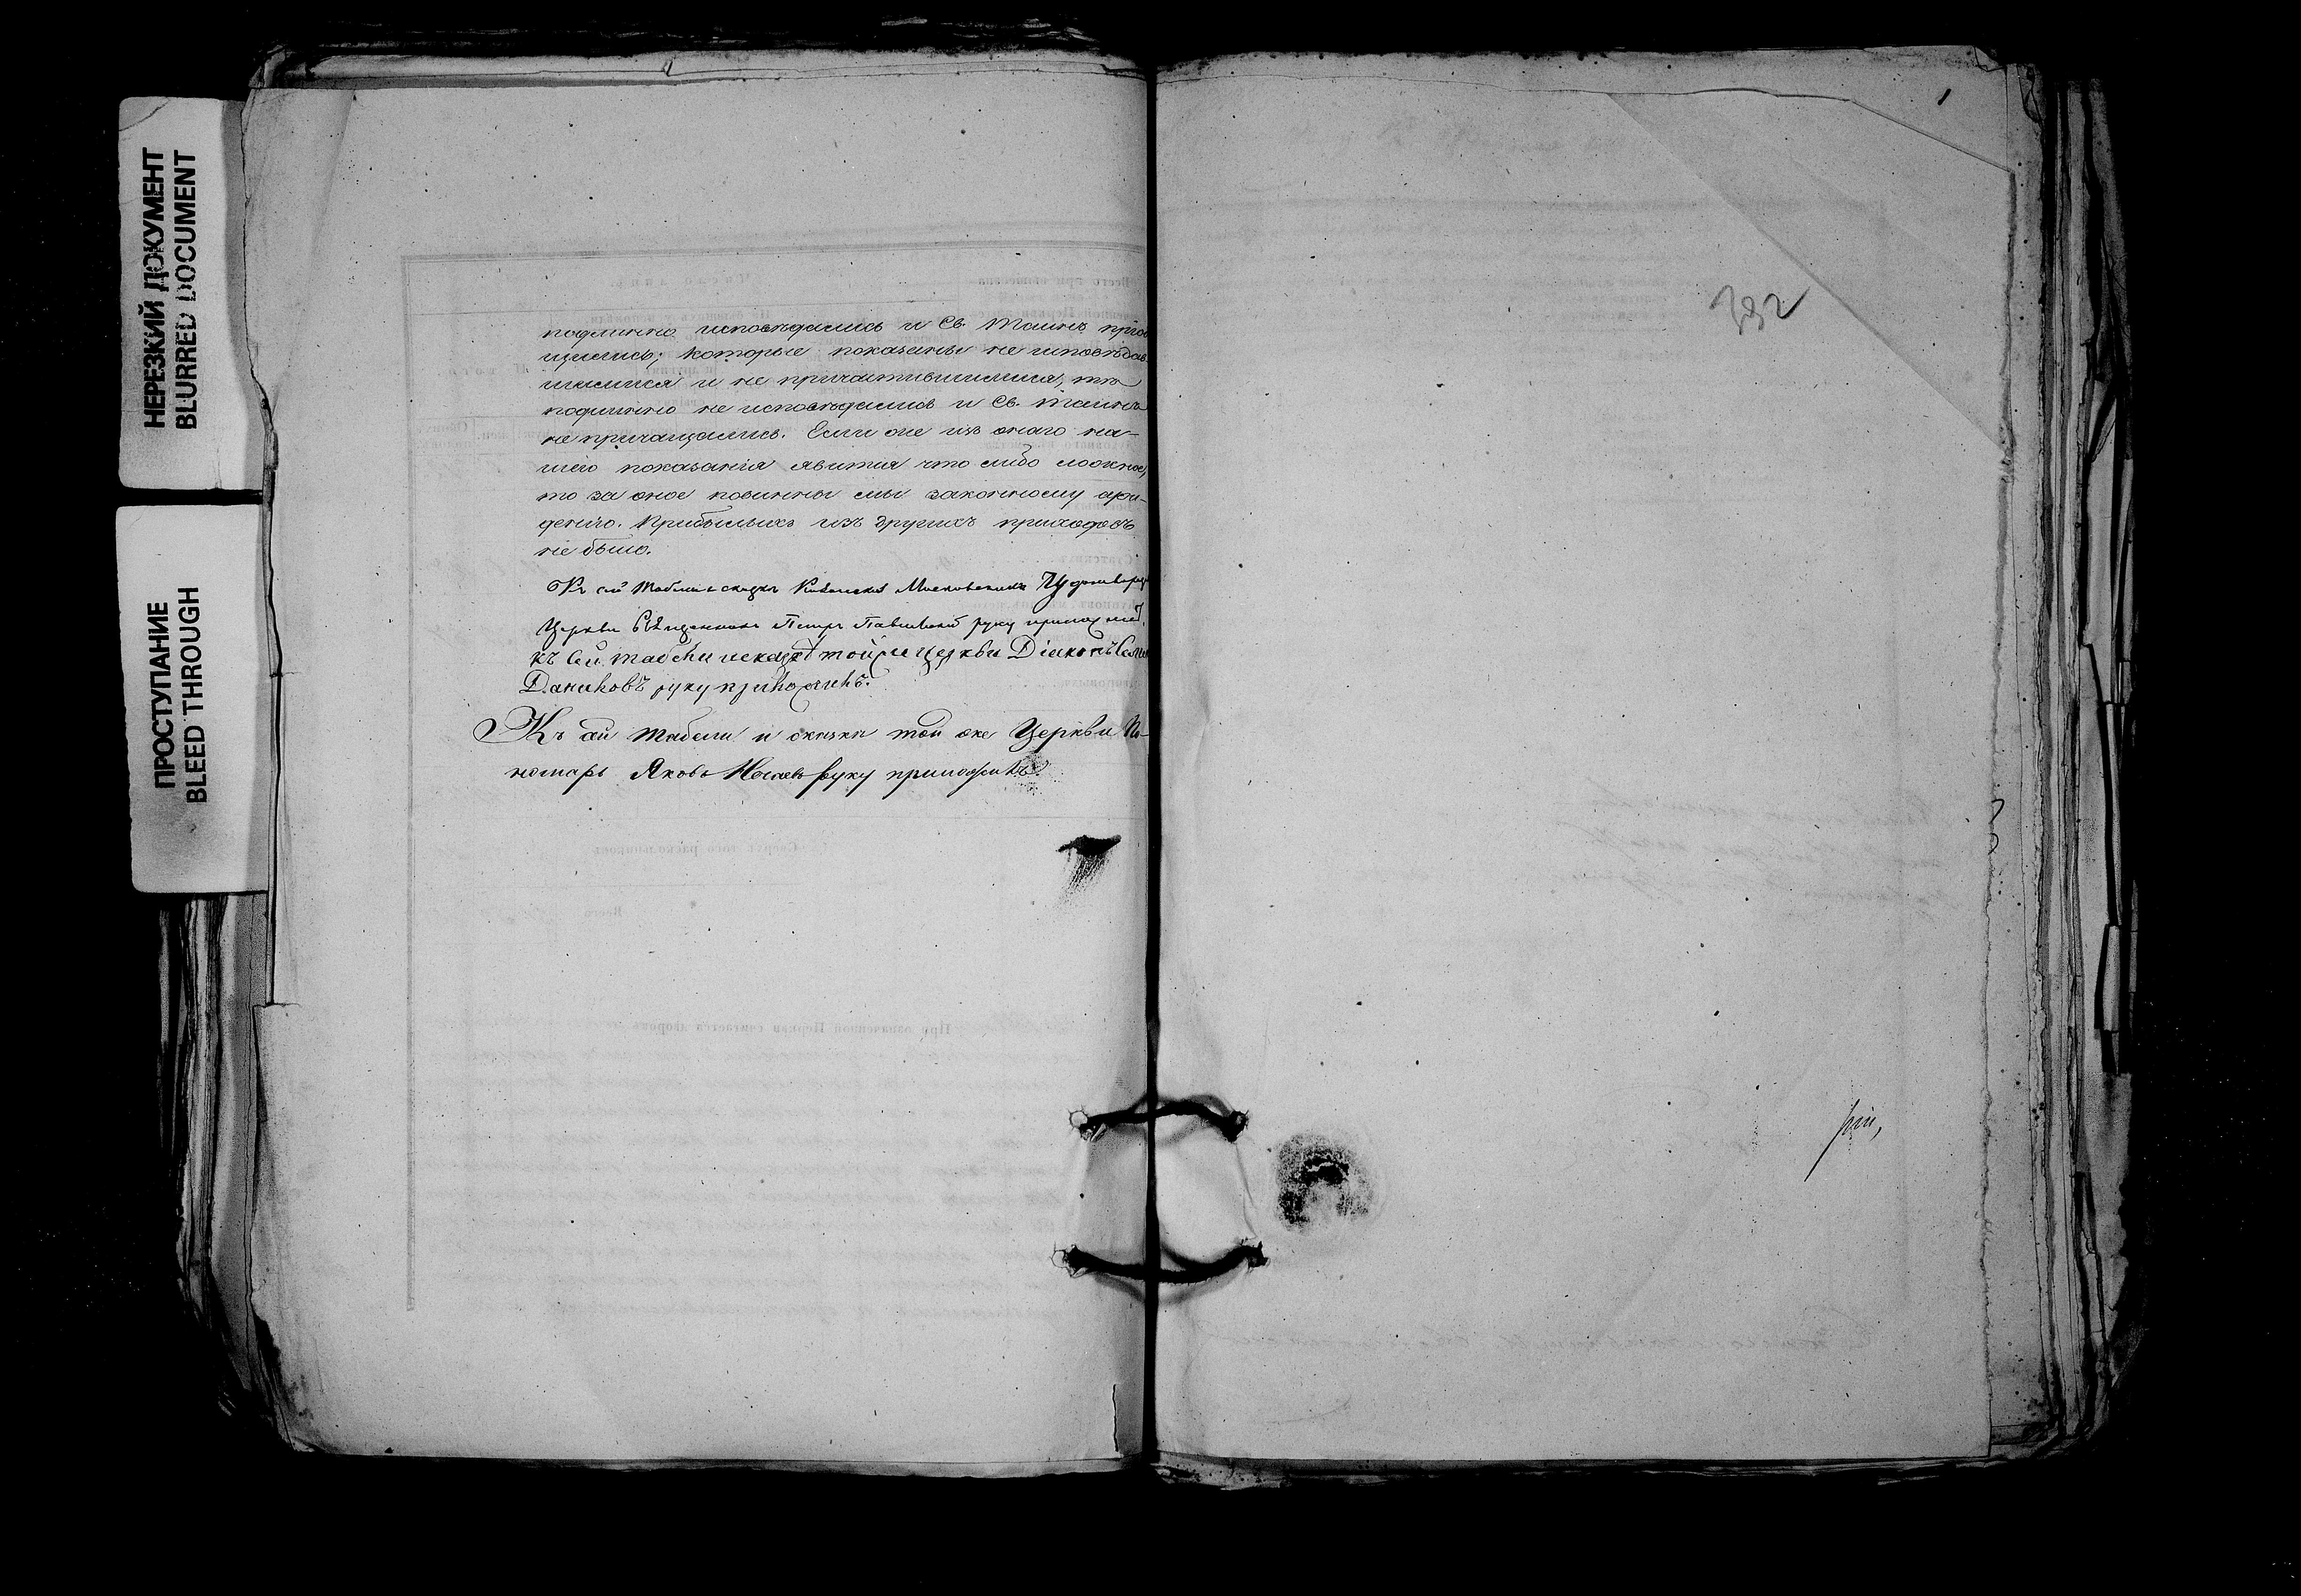 НЕРЕЗКИЙ ДОКУМЕНТ
BLURRED DOCUMENT
ПРОСТУПАНИЕ
BLEED THROUGH
подлинно исповѣдались и Св. Таинъ пріоб
щились; которые показаны не исповѣдав
шимися и не причастившимися, тѣ
подлинно не исповѣдались и Св. Таинъ
не причащались. Если же изъ онаго на-
шего показанія явится что либо ложное,
то за оное повинны мы законному суж-
денію. Прибылыхъ изъ другихъ приходовъ
не было.
Къ сей табели и сказкѣ Московскихъ Чудотворц
Церкви Священникъ Петръ руку приложилъ.
Къ сей табели и сказкѣ той же церкви Діаконъ
Даниловъ руку приложилъ.
Къ сей табели и сказки той же Церкви По-
номарь Яковъ руку приложилъ.
392